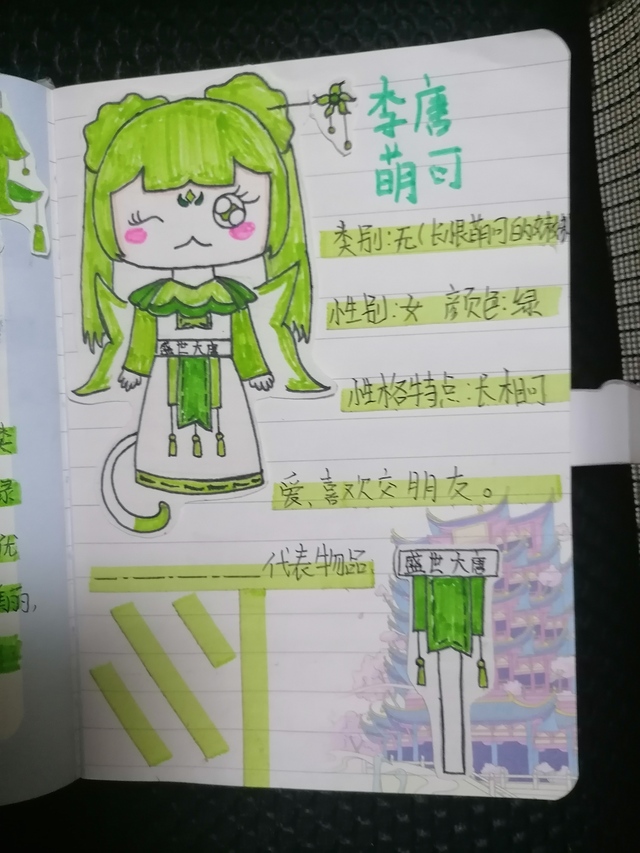 李唐
萌可
类别:无(长恨萌可的嫁
性别:女 颜色:绿
盛世大唐
性格特点:长相可
爱、喜欢交朋友。
代表物品
盛世大唐
绿
优
的,